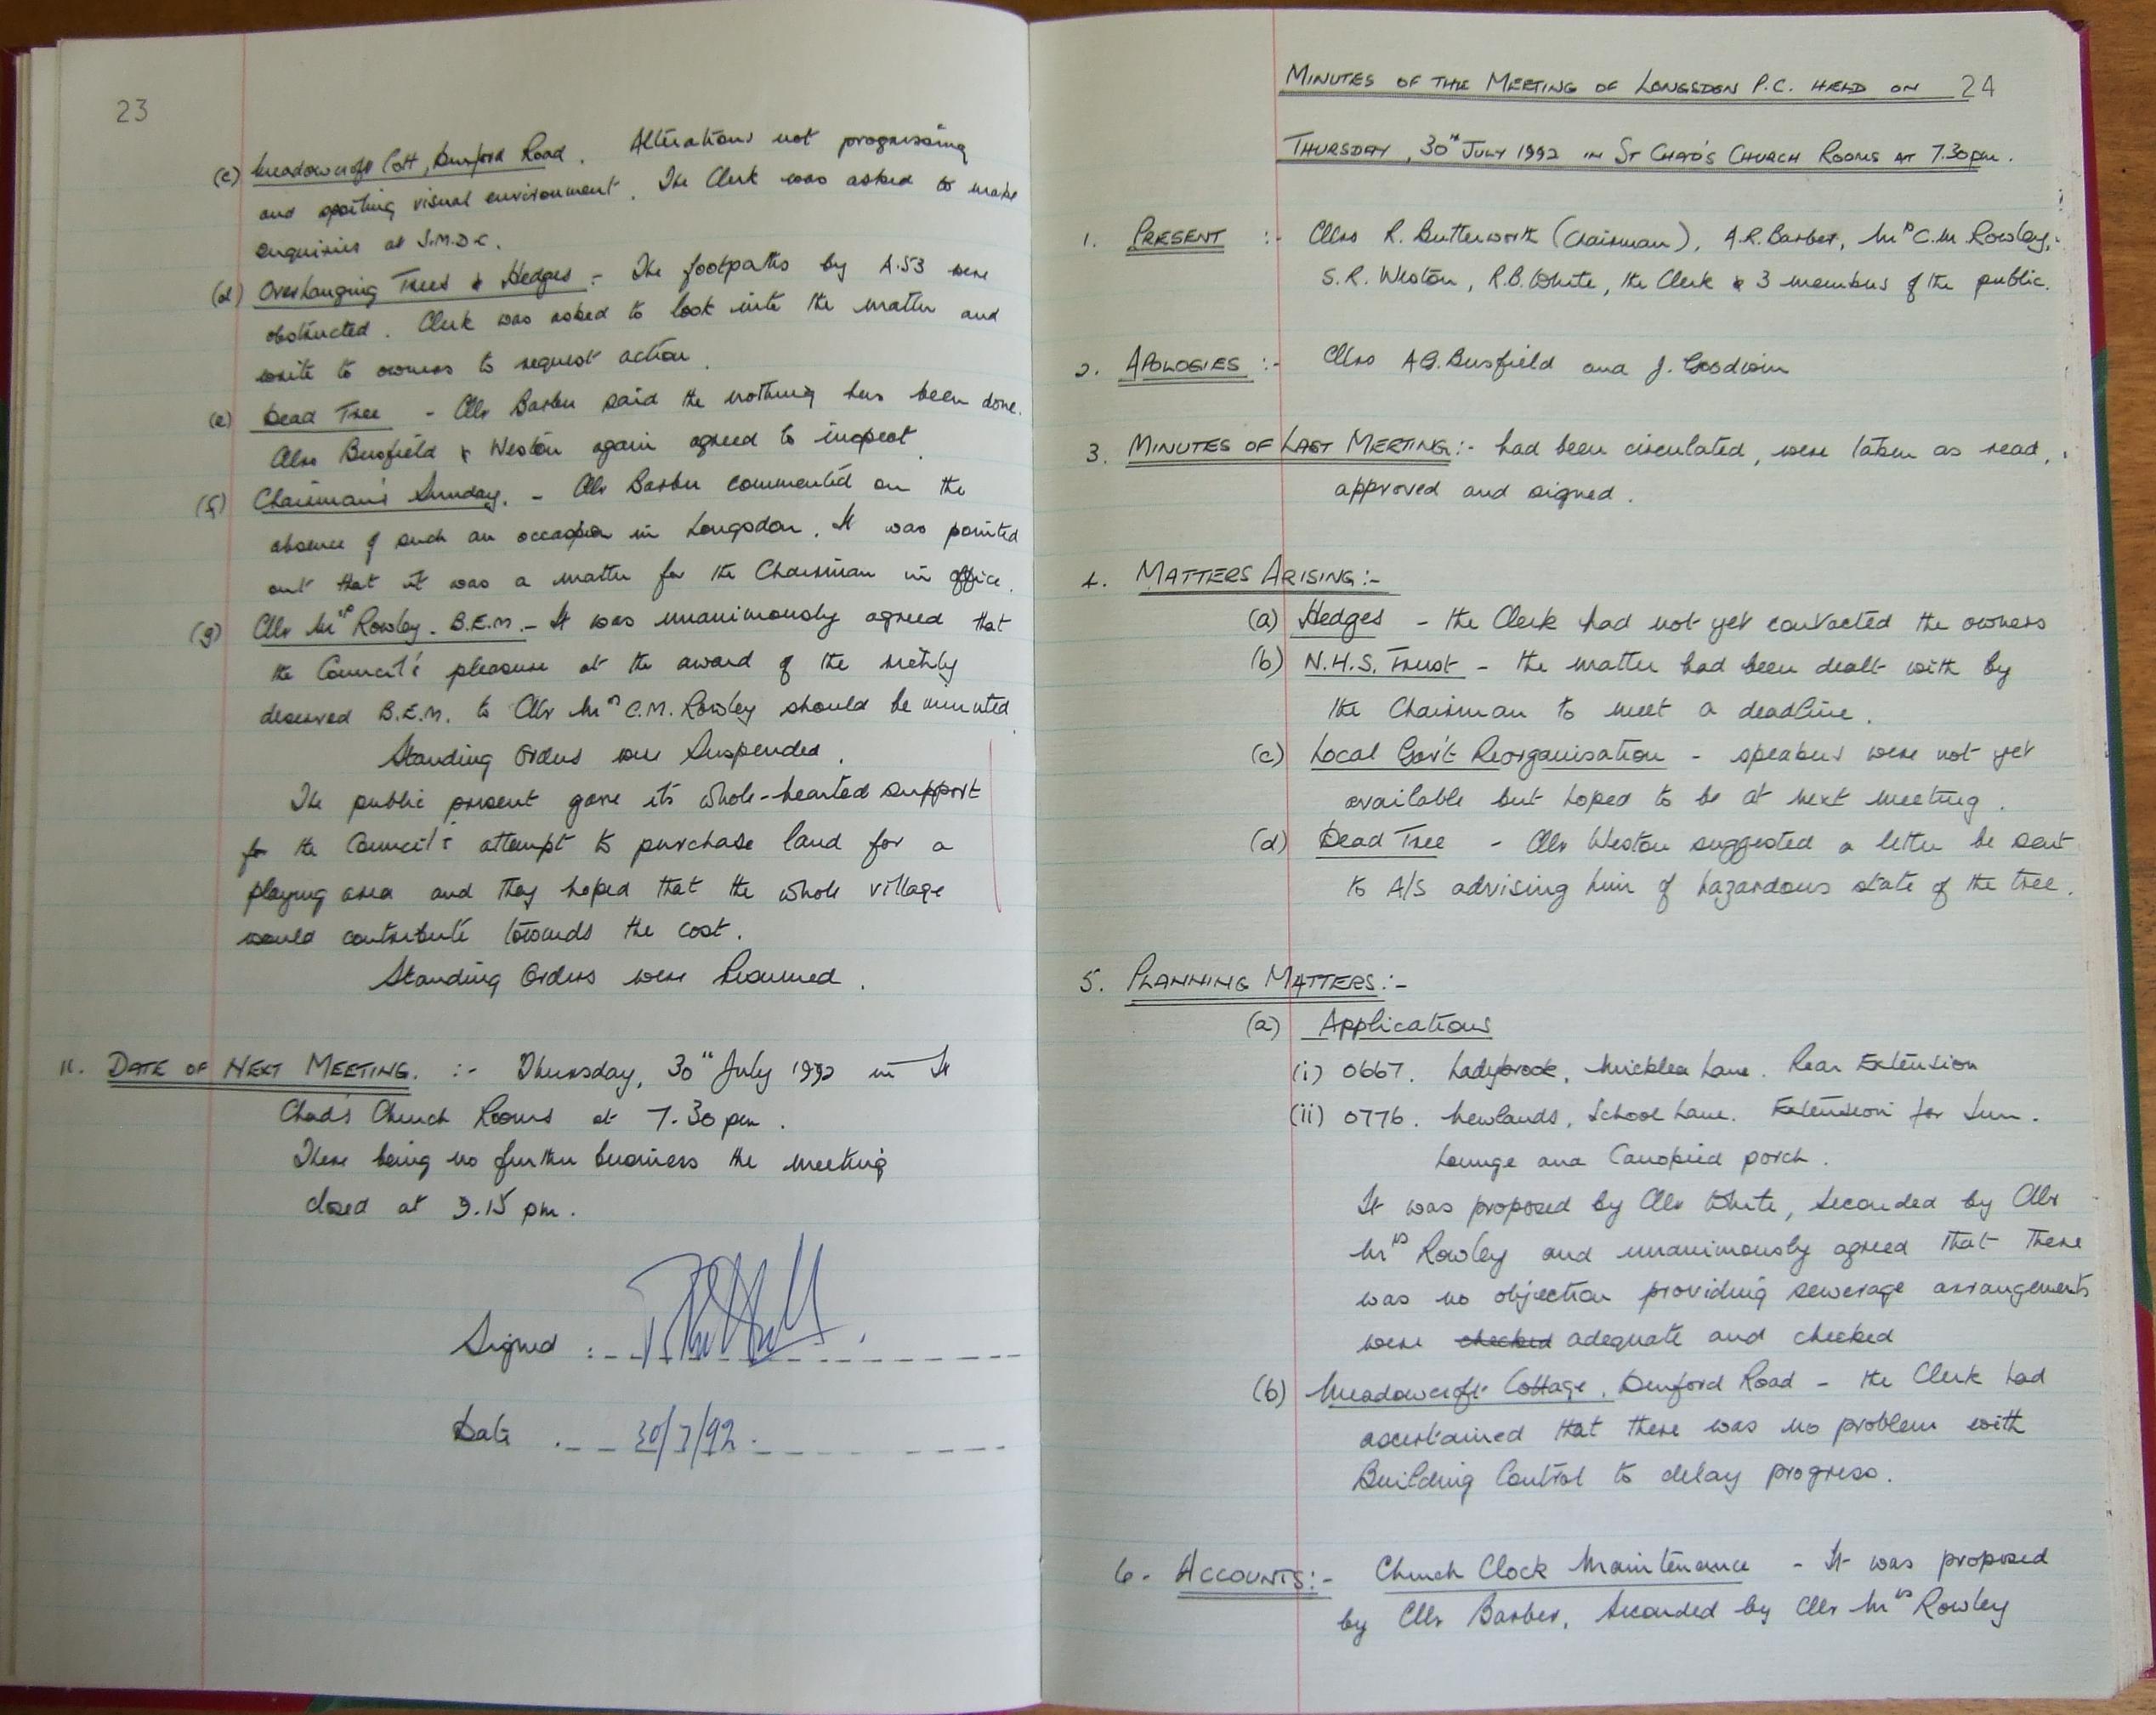 23
(c) Meadowcroft Cott, Denford Road. Alterations not progressing
and spoiling visual environment. The Clerk was asked to make
enquiries at S.M.D.C.
(d) Overhanging Trees & Hedges :- The footpaths by A.53 were
obstructed. Clerk was asked to look into the matter and
write to owners to request action.
(e) Dead Tree - Cllr Barber said the nothing has been done.
Cllrs Busfield & Weston again agreed to inspect.
(f) Chairman's Sunday. - Cllr Barber commented on the
absence of such an occasion in Longsdon. It was pointed
out that it was a matter for the Chairman in office.
(g) Cllr Mrs Rowley. B.E.M. - It was unanimously agreed that
the Council's pleasure at the award of the richly
deserved B.E.M. to Cllr Mrs C.M. Rowley should be minuted.
Standing Orders were Suspended.
The public present gave its whole-hearted support
for the Council's attempt to purchase land for a
playing area and they hoped that the whole village
would contribute towards the cost.
Standing Orders were Resumed.
11. DATE OF NEXT MEETING. :- Thursday, 30th July 1992 in St
Chad's Church Rooms at 7.30 pm.
There being no further business the meeting
closed at 9.15 pm.
Signed :
Date 30/7/92.
MINUTES OF THE MEETING OF LONGSDON P.C. HELD ON 24
THURSDAY, 30th JULY 1992 IN ST CHAD'S CHURCH ROOMS AT 7.30pm.
1. PRESENT :- Cllrs R. Butterworth (Chairman), A.R. Barber, Mrs C.M. Rowley,
S.R. Weston, R.B. White, the Clerk & 3 members of the public.
2. APOLOGIES :- Cllrs A.G. Busfield and J. Goodwin
3. MINUTES OF LAST MEETING:- had been circulated, were taken as read,
approved and signed.
4. MATTERS ARISING:-
(a) Hedges - the Clerk had not yet contacted the owners
(b) N.H.S. Trust - the matter had been dealt with by
the Chairman to meet a deadline.
(c) Local Gov't Reorganisation - speakers were not yet
available but hoped to be at next meeting.
(d) Dead Tree - Cllr Weston suggested a letter be sent
to A/S advising him of hazardous state of the tree.
5. PLANNING MATTERS:-
(a) Applications
(i) 0667. Ladybrook, Micklea Lane. Rear Extension
(ii) 0776. Newlands, School Lane. Extension for Sun
Lounge and Canopied porch.
It was proposed by Cllr White, seconded by Cllr
Mrs Rowley and unanimously agreed that there
was no objection providing sewerage arrangements
were checked adequate and checked
(b) Meadowcroft Cottage, Denford Road - the Clerk had
ascertained that there was no problem with
Building Control to delay progress.
6. ACCOUNTS:- Church Clock Maintenance - It was proposed
by Cllr Barber, seconded by Cllr Mrs Rowley